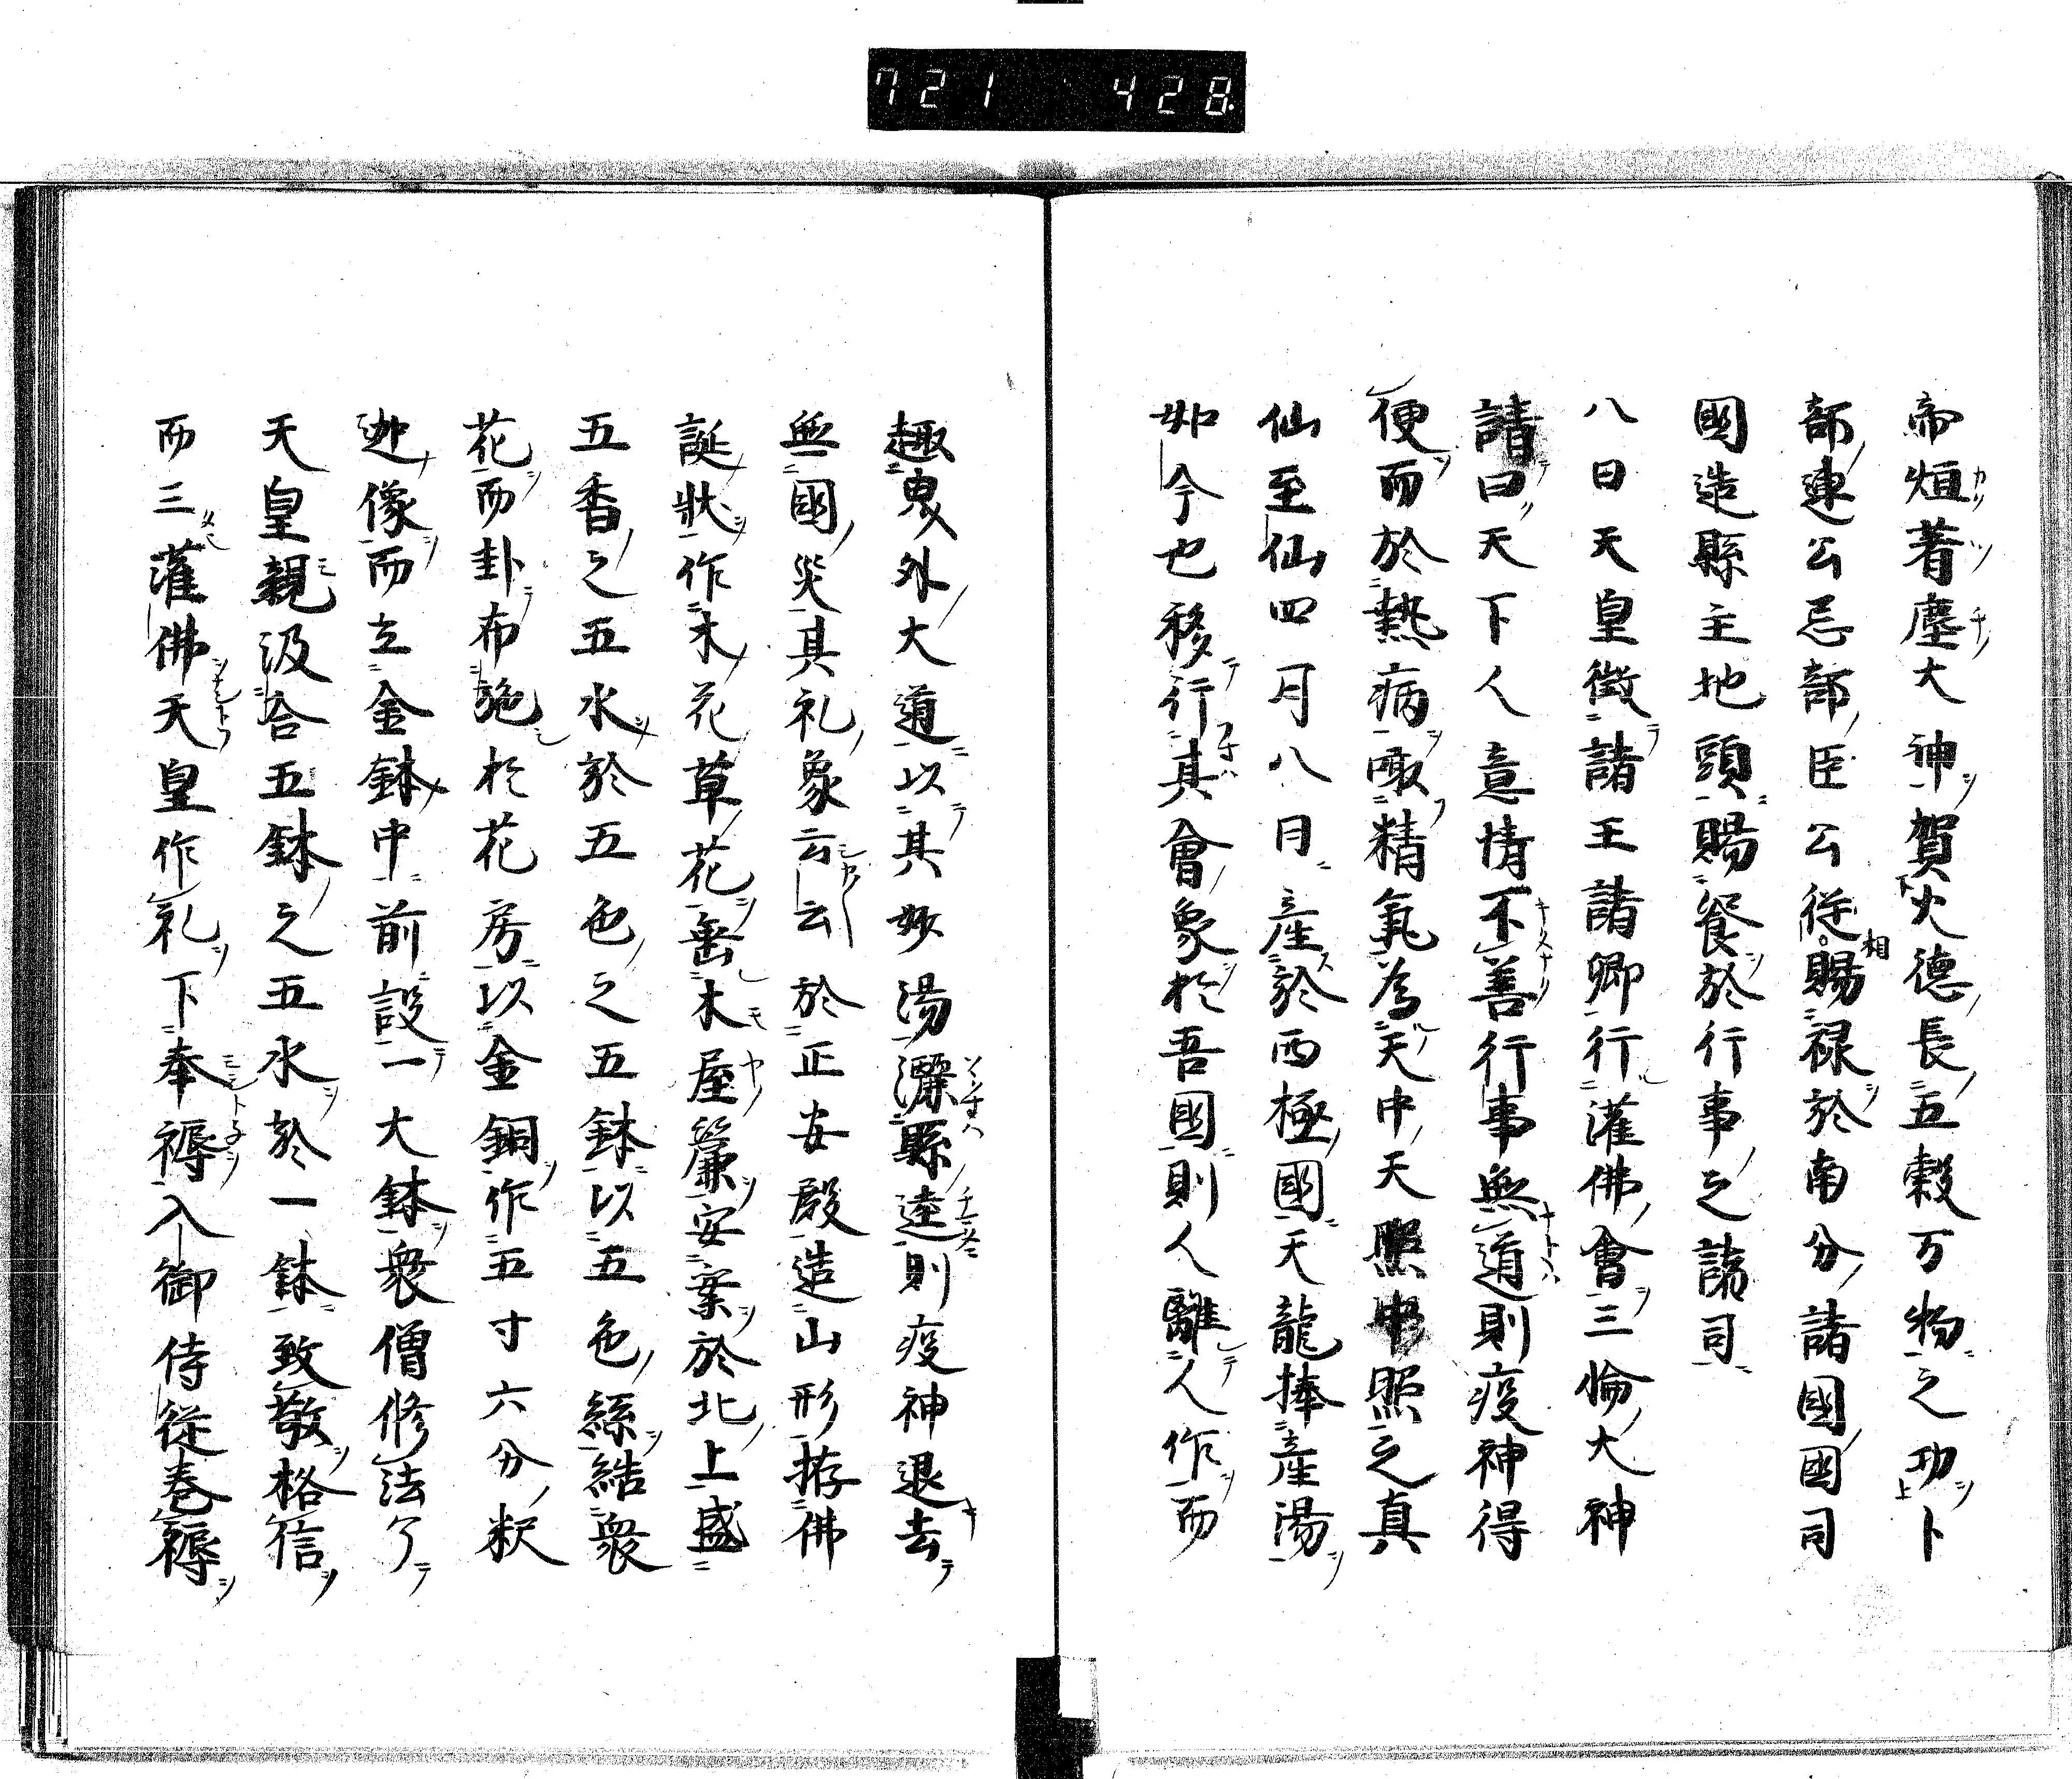 721 428
帝烜著塵大神賀火德長五穀万物之功卜
部連公忌部臣公従相賜禄於南分諸國國司
國造縣主地頭賜餐於行事之諸司
八日天皇徴諸王諸卿行灌佛會三倫大神
請曰天下人意情不善行事無道則疫神得
便而於熱病㗖精氣為天中天照中照之真
仙至仙四月八日産於西極國天龍捧産湯
如今也移行其會象於吾國則人離人作而
趣鬼外大道以其妙湯灑縣逵則疫神退去
無國災其礼象云云於正安殿造山形搩佛
誕状作木花草花垂木屋簾安案於北上盛
五香之五水於五色之五鉢以五色絲結衆
花而卦布施於花房以金銅作五寸六分釈
迦像而立金鉢中前設一大鉢衆僧修法了
天皇親汲合五鉢之五水於一鉢致敬格信
而三灌佛天皇作礼下奉褥入御侍従巻褥